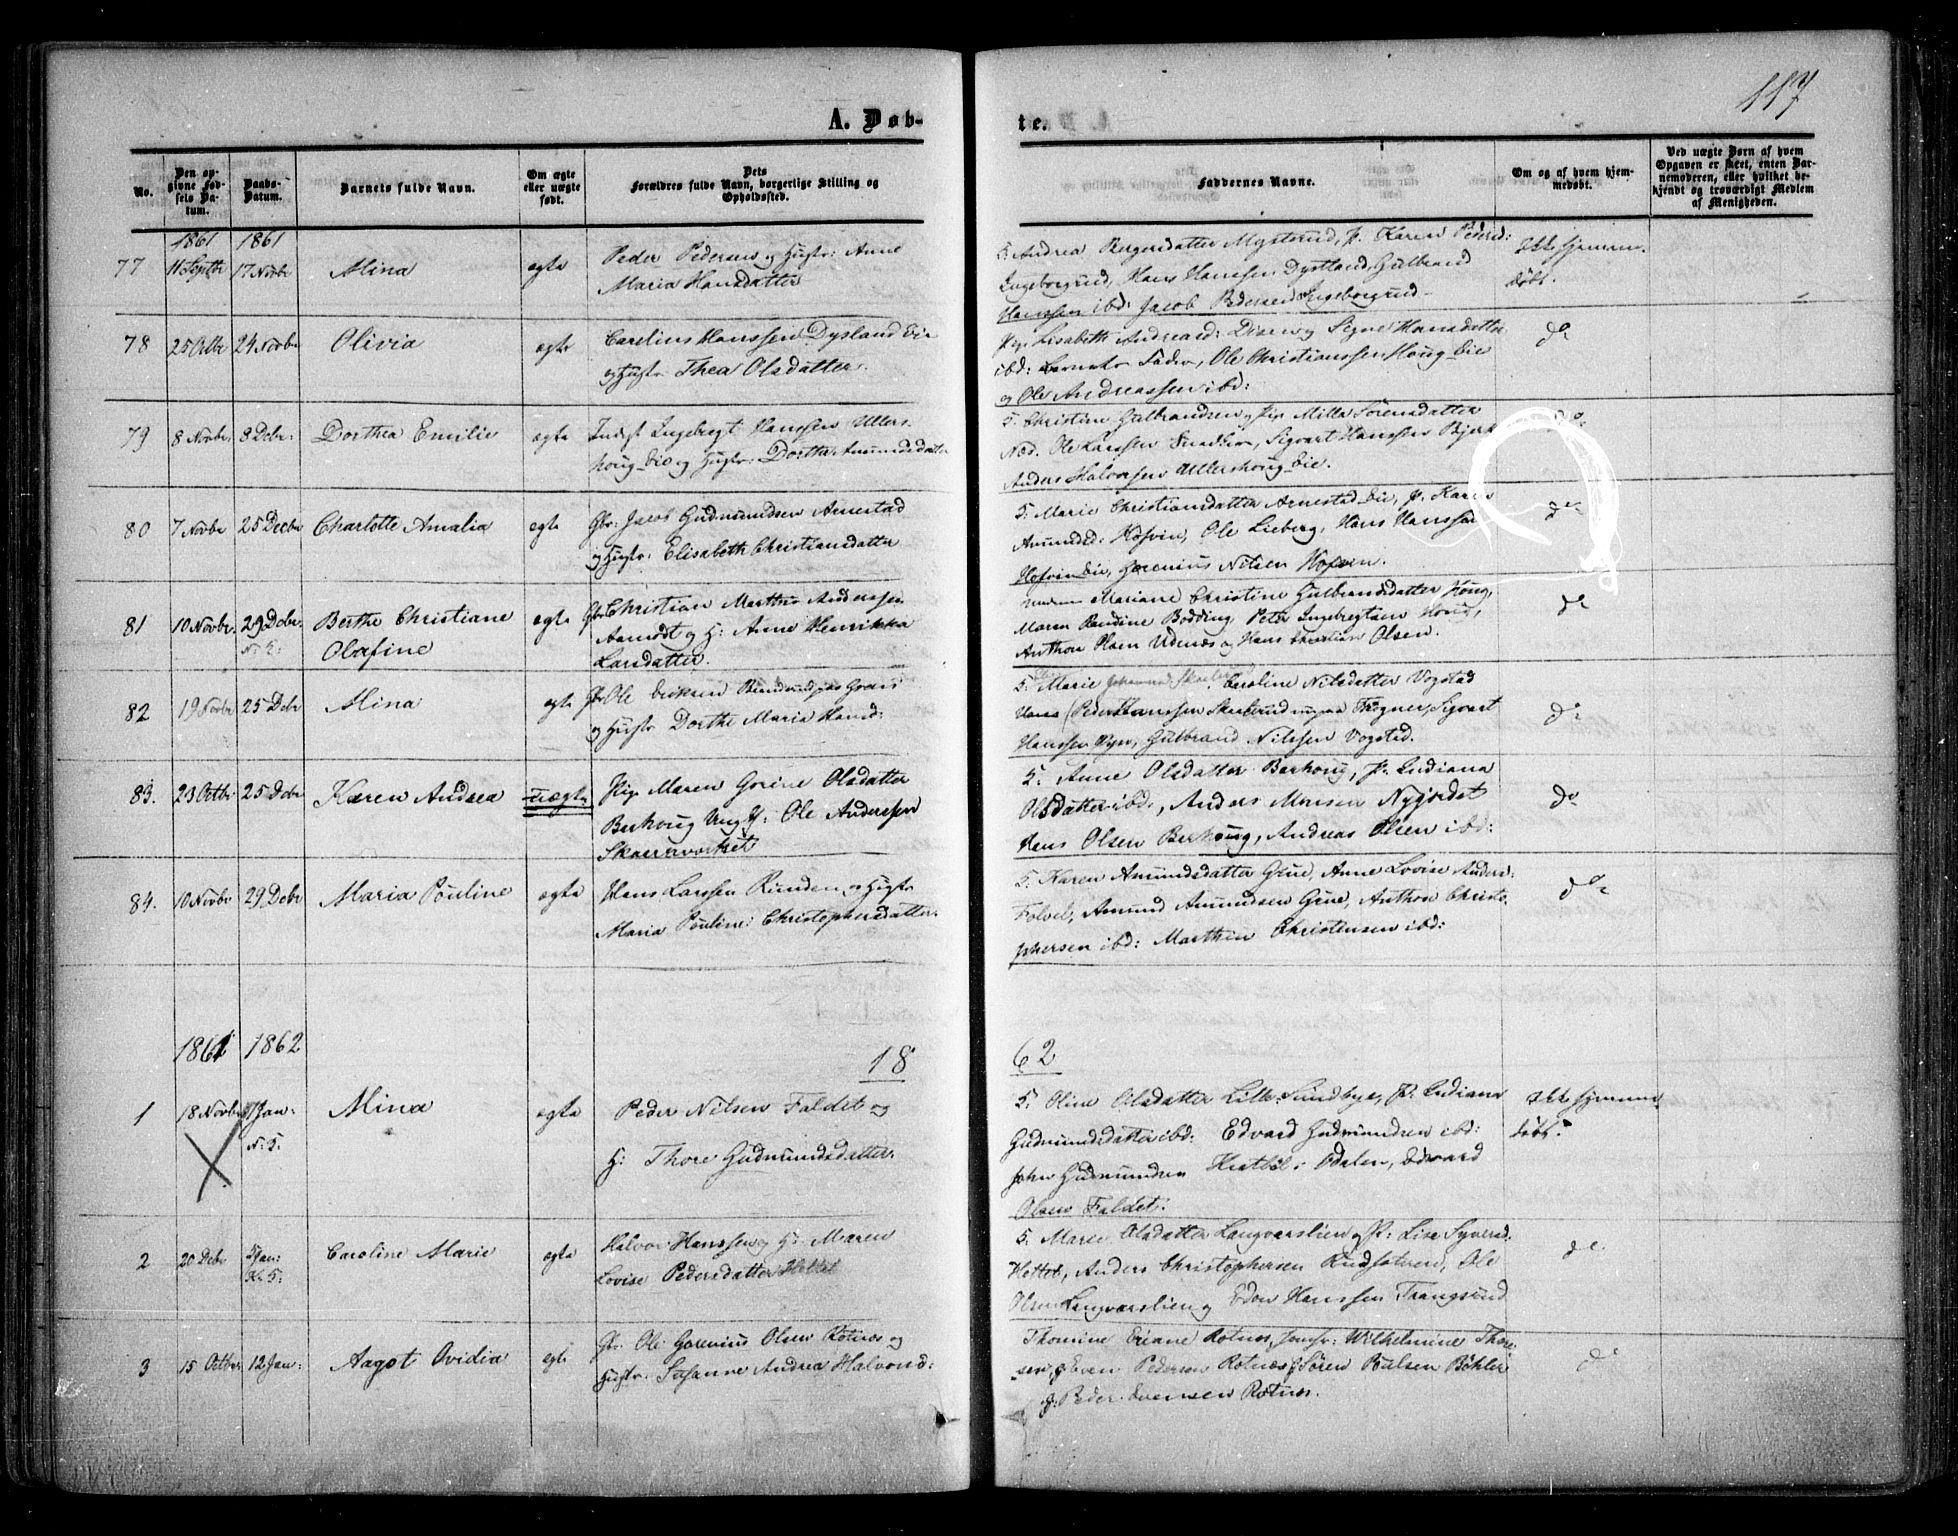 117
A. Døb-
te.
No.
Den op-
givne Fød-
sels Da-
tum.
Daabs-
Datum.
Barnets fulde Navn.
Om ægte
eller uægte
født.
Dets
Forældres fulde Navn, borgerlige Stilling og
Opholdssted.
Faddernes Navne.
Om og af hvem hjem-
medøbt.
Ved uægte Børn af hvem
Opgaven er skeet, enten Bar-
nemoderen, eller hvilket be-
kjendt og troværdigt Medlem
af Menigheden.
1861 1861
77 11 Septbr 17 Novbr Mina ægte
Peder Pedersen og Hustr: Anne
Maria Hansdatter
J. Andrea Bergersdatter Mysterud, P. Karen Pedersd:
Ingeborgrud, Hans Hanssen Dystland, Gulbrand
Hanssen ibd: Jacob Pedersen Ingeborgrud
Ikke hjemme-
døbt.
78 25 Octbr 24 Novbr Olivia ægte
Carelius Hanssen Dysland Eie
og Hustr Thea Olsdatter.
Lisabeth Andreasd: og Signe Hansdatter
ibd: Barnets Fader, Ole Christianssen Houg Eie
og Ole Andreassen ibd:
do
79 8 Novbr. 8 Decbr: Dorthea Emilie ægte
Indst Ingebregt Hanssen Ullers-
houg Eie og Hustr: Dorthe Amundsdatter
J. Christine Gulbrandsen og Pig: Milla Sørensdatter
Næd. Ole Larssen Sigvart Hanssen Bjerke
Anders Halvorsen Ullershoug Eie.
do
80 7 Novbr 25 Decbr Charlotte Amalia ægte
Gbr: Jacob Gudmundsen Arnestad
og Hustr: Elisabeth Christiansdatter
J. Marie Christiansdatter Arnestad Eie, P. Karen
Amundsd: Hofvin, Ole Lieberg, Hans Hanssen
Hofvin Eie, Gorenius Nilsen Hofvin.
do
81 10 Novbr. 29 Decbr. Berthe Christiane ægte
Olafine
Gbr Christian Marthin Anderssen
Aamodt og H: Anne Henrikka
Larsdatter.
Mariane Christine Gulbrandsdatter Houg,
Maren Randine Bodding, Peter Ingebregtsen Houg,
Anthon Olsen Udnæs og Hans Olsen.
do
82 19 Novbr 25 Decbr Mina ægte
Gbr Ole Eriksen
og Hustr Dorthe Maria Hansd:
J. Marie Johanne Caroline Nilsdatter Vogstad
Hans (Peder Hanssen Skoterud Frogner, Sigvart
Hanssen Gulbrand Nilssen Vogstad.
do
83. 23 Octbr 25 Decbr Karen Andrea uægte
Pig: Maren Gorine Olsdatter
Berhoug Ung K: Ole Anderssen
Skarervarket
J. Anne Olsdatter Berhoug, P. Ludiana
Olsdatter ibd., Anders Monsen Nygordet
Hans Olsen Berhoug, Andreas Olsen ibd:
do
84. 10 Novbr 29 Decbr Maria Pouline ægte
Hans Larssen Runden og Hustr
Maria Pouline: Christophersdatter.
J. Karen Amundsdatter Grue, Anne Lovise Andersd:
Folvel, Amund Amundsen Grue, Anthon Christo-
phersen ibd: Marthin Christensen ibd:
do
1861 1862
18
62
1 18 Novbr 1 Jan: Mina ægte
N: K:
Peder Nilsen Faldet og
H: Thore Gudmundsdatter.
J. Oline Olsdatter Lille Sundbye, P. Ludiana
Gudmundsdatter ibd: Edvard Gudmundsen ibd:
John Gudmundsen Odalen, Edvard
Olsen Faldet.
Ikke hjemme-
døbt.
2 20 Decbr Jan: Caroline Marie ægte
Halvor Hanssen og H: Maren
Lovise Pedersdatter Hellet
J. Marie Olsdatter Langvarslien og P: Lise Syversd.
Hellet, Anders Christophersen Rudsatren, Ole
Olsen Langvarslien og Edon Hanssen Trangsund
do
3 15 Octbr 12 Jan: Aagot Ovidia ægte
Gbr Ole Gorenius Olsen Rotnæs og
Hustr. Susanne Andrea Halvorsd:
Thomine Eriane Rotnæs, Jomfr: Wilhelmine Thore-
sen, Even Pedersen Rotnæs Søren Poulsen Bøhler
Peder Evensen Rotnæs.
do